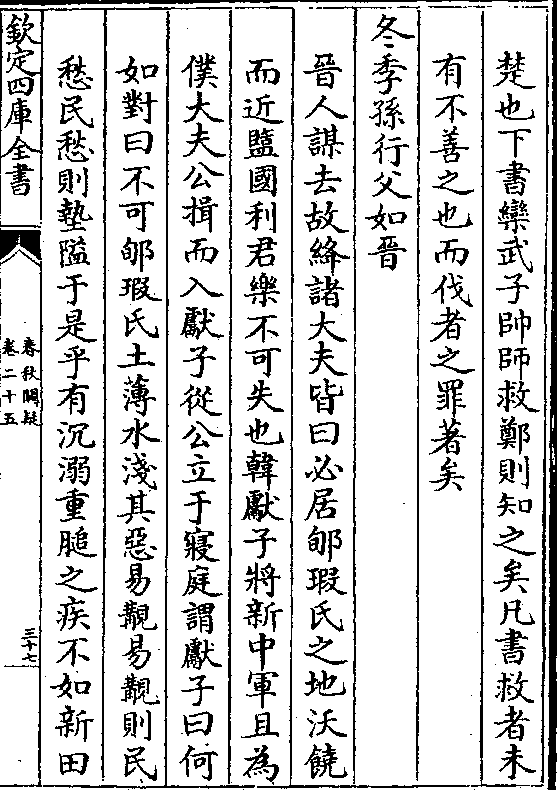 楚也下書欒武子帥師救鄭則知之矣凡書救者未
有不善之也而伐者之罪著矣
冬季孫行父如晉
晉人謀去故絳諸大夫皆曰必居郇瑕氏之地沃饒
而近盬國利君樂不可失也韓獻子將新中軍且為
僕大夫公揖而入獻子從公立于寢庭謂獻子曰何
如對曰不可郇瑕氏土薄水淺其惡易覯易覯則民
愁民愁則墊隘于是乎有沉溺重膇之疾不如新田
欽定四庫全書
春秋闕疑
卷二十五
三十七